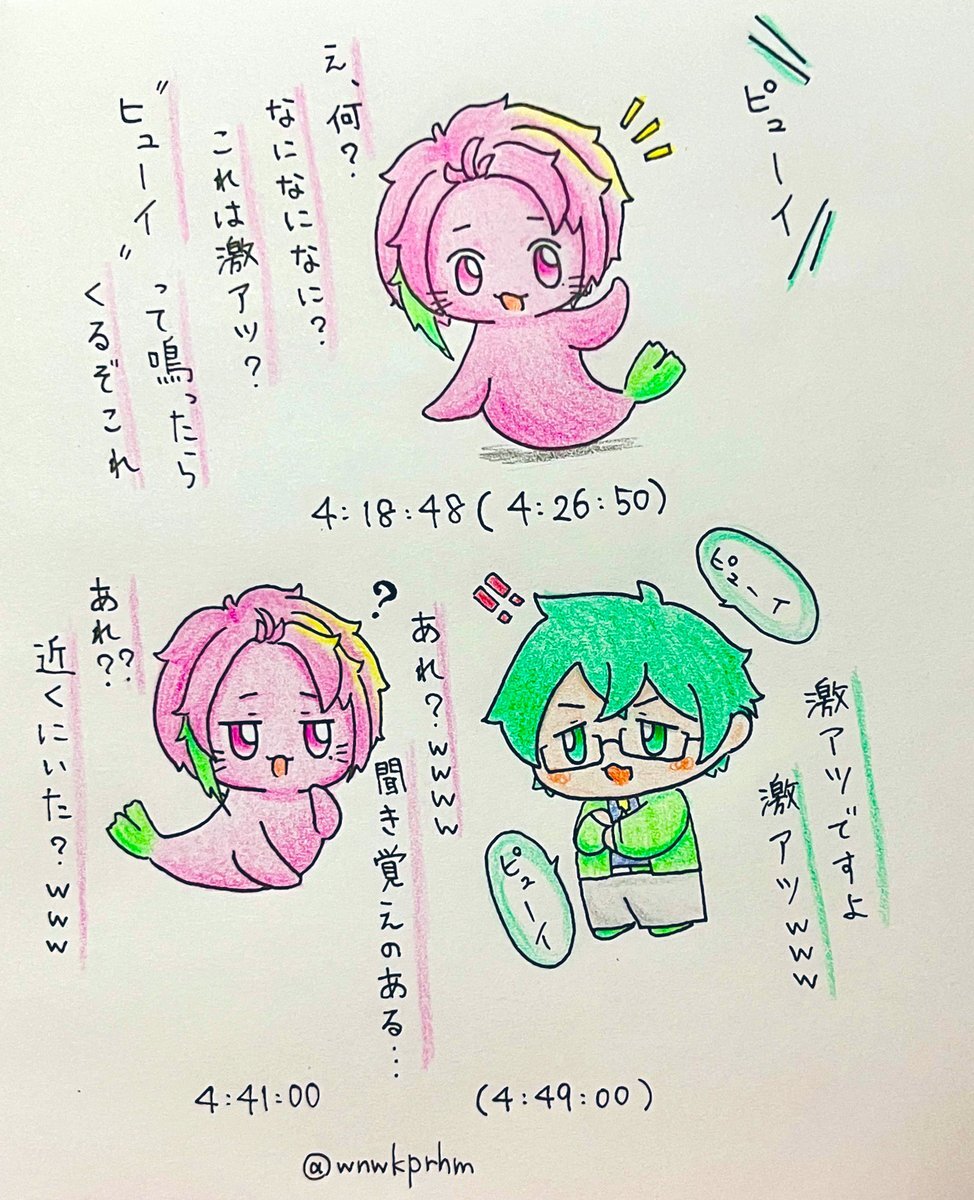 ピューイ
え、何?
なになになに?
これは激アツ?
"ピューイ"って鳴ったら
くるぞこれ
4:18:48(4:26:50)
ピューイ
激アツですよ
激アツwww
ピューイ
あれ?wwww
聞き覚えのある…
?
あれ??
近くにいた?www
4:41:00
(4:49:00)
@wnwkprhm